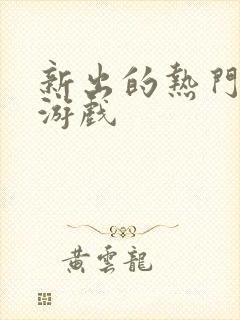 新出的熱門
游戲
黃雲龍